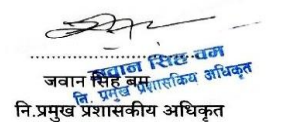 जवान सिंह बम
नि. प्रमुख प्रशासकिय अधिकृत
जवान सिंह बम
नि.प्रमुख प्रशासकीय अधिकृत